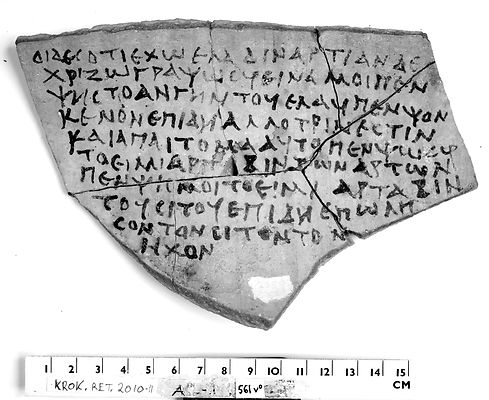 ΟΙΔΕϹΟΤΙΕΧΩΕΛΑΔΙΝΑΡΤΙΑΝΔΕ
ΧΡΙΖΩΓΡΑΨΩϹΥΕΙΝΑΜΟΙΠΕΝ
ΨΗϹΤΟΑΝΓΗΝΤΟΥΕΛΑΨΠΕΝΨΟΝ
ΚΕΝΟΝΕΠΙΔΗΑΛΛΟΤΡΙΝΕϹΤΙΝ
ΚΑΙΑΠΑΙΤΟΜΑΑΥΤΟΠΕΝΨΩϹΥ
ΤΟΕΙΜΙΑΡΤΑΒΙΝΤΩΝΑΡΤΩΝ
ΠΕΝΨΗΜΟΙΤΟΕΙΜΙ ΑΡΤΑΒΙΝ
ΤΟΥϹΙΤΟΥΕΠΙΔΗΕΠΩΛΗ
ϹΟΝΤΟΝϹΙΤΕΝΤΟΝ
ΗΧΟΝ
1 2 3 4 5 6 7 8 9 10 11 12 13 14 15
CM
KROK. RET. 2010-11 561 v°